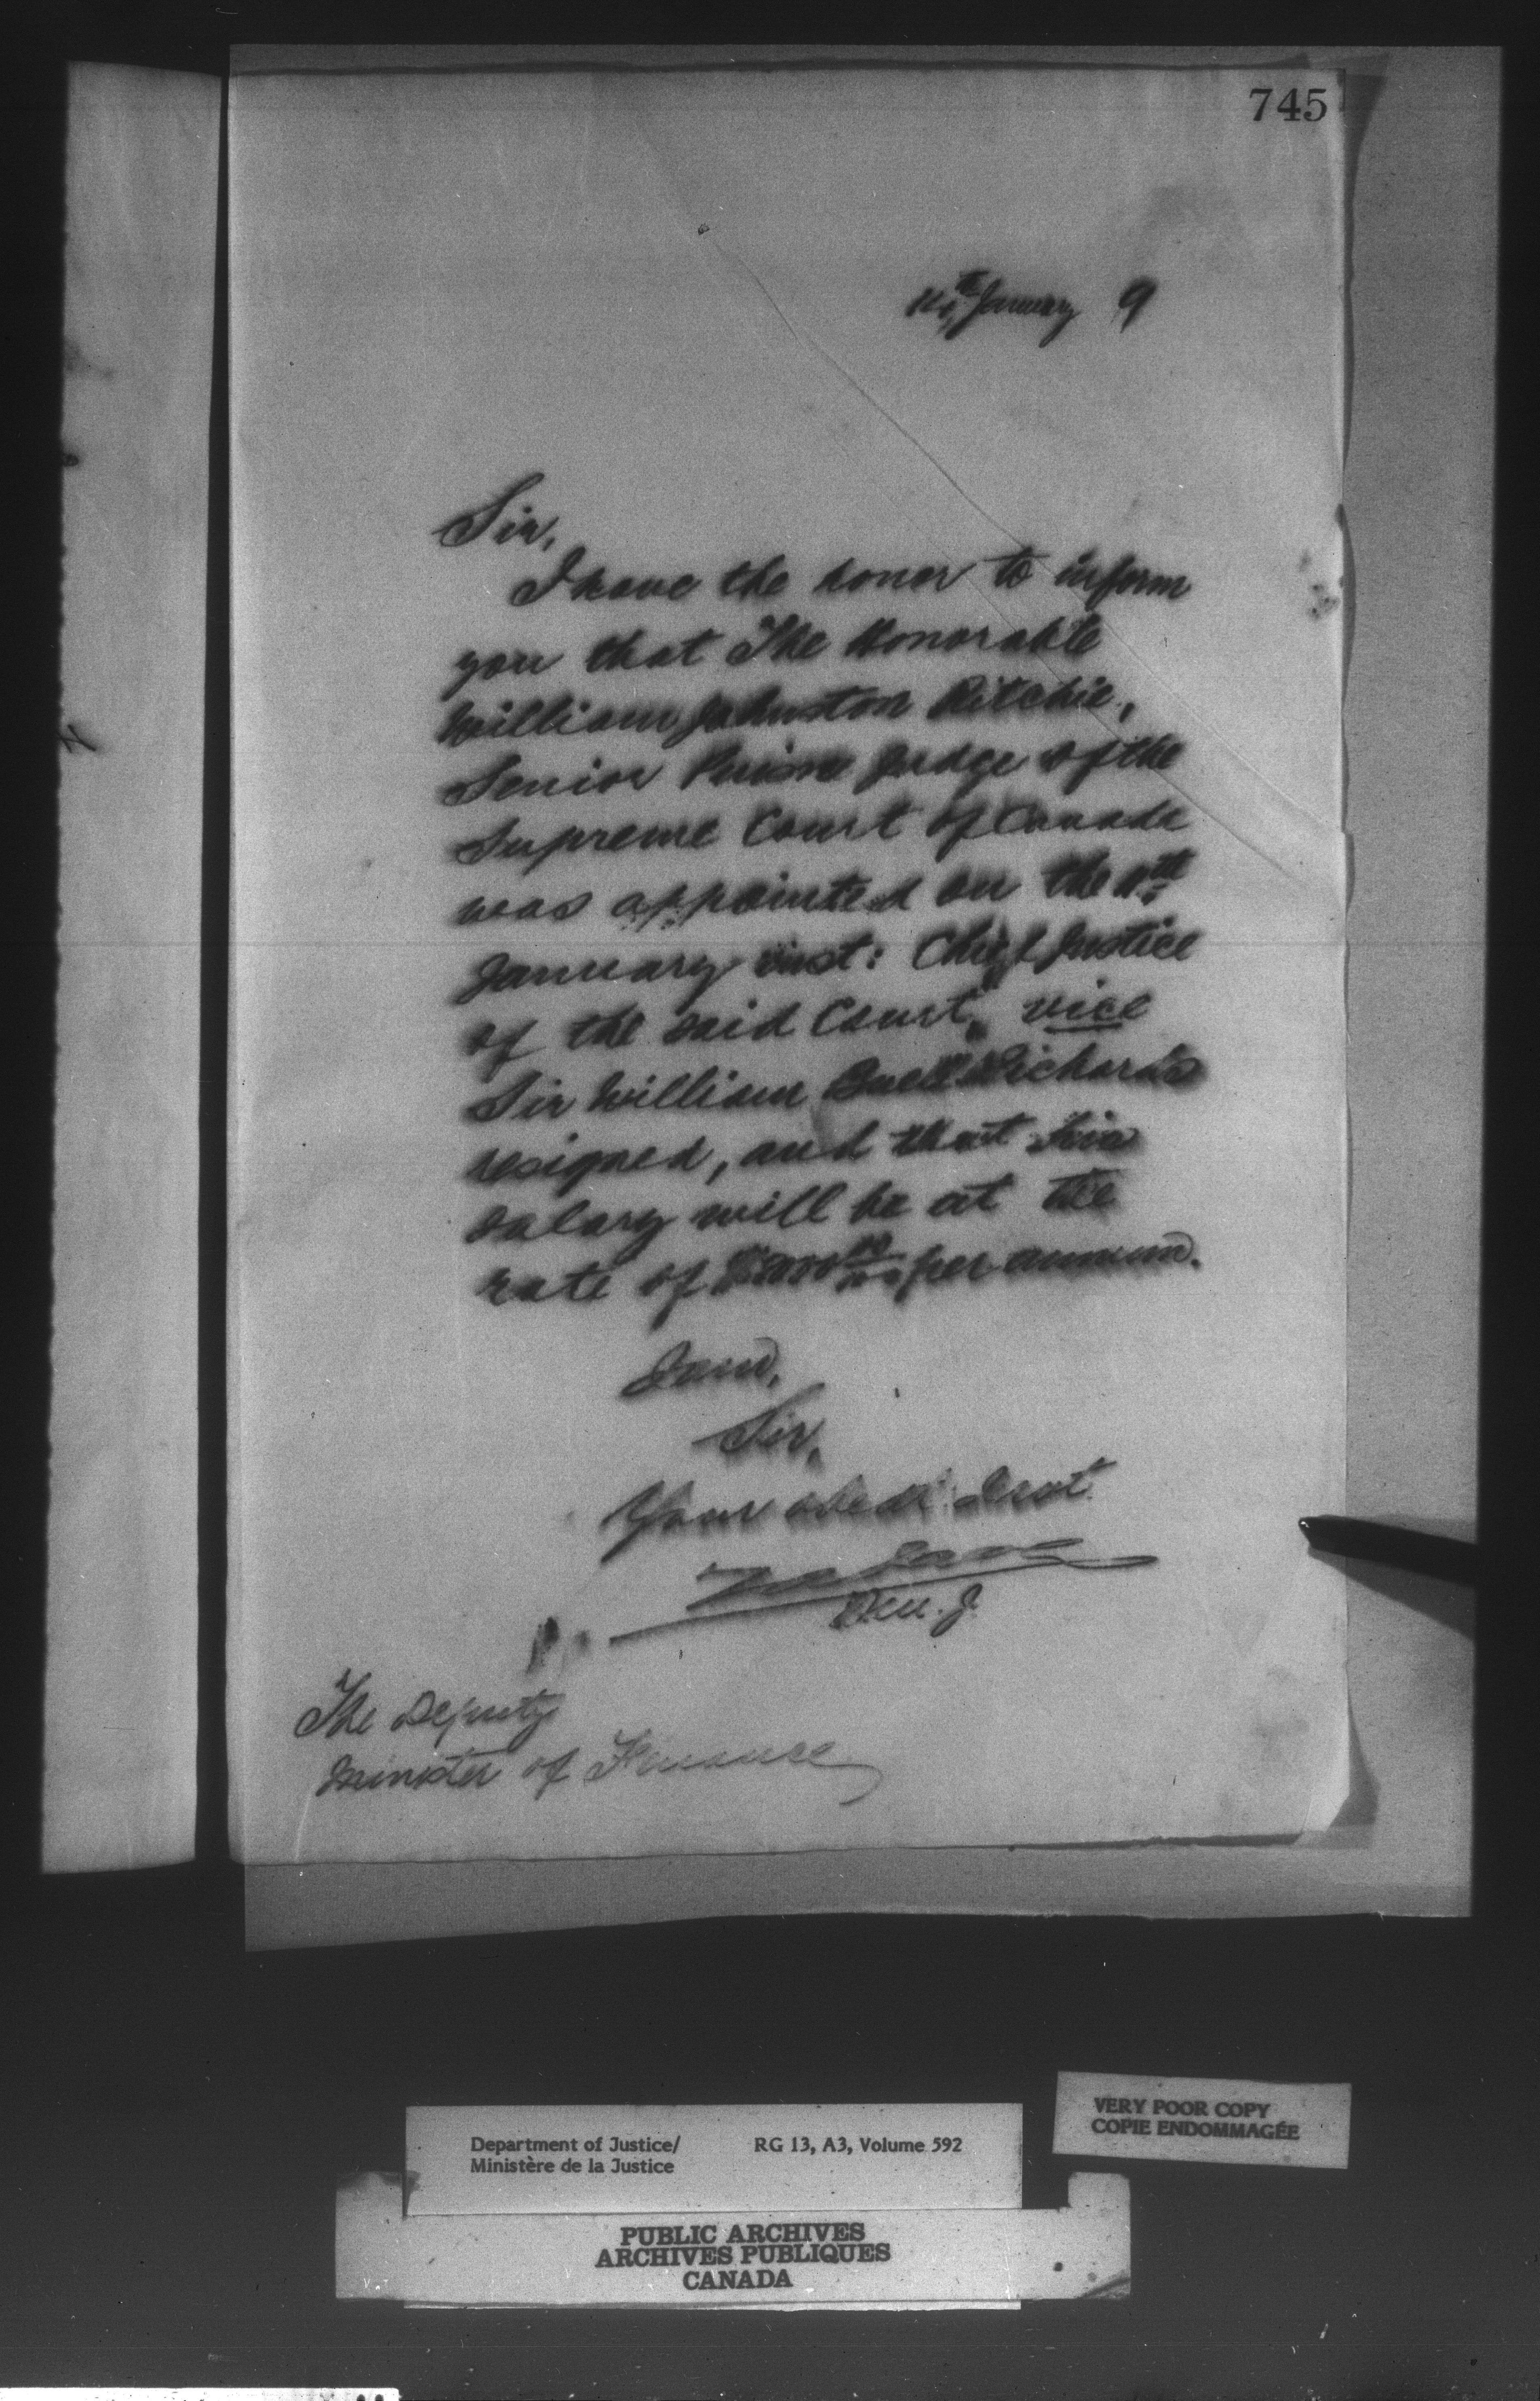 745
January 9
Sir,
I have the honor to inform
you that The Honorable
William Johnston Ritchie,
Senior Puisne Judge of the
Supreme Court of Canada
was appointed on the 11th
January inst: Chief Justice
of the said Court, vice
Sir William Buell Richards
resigned, and that his
salary will be at the
rate of per annum.
I am,
Sir,
Your obedt Servt
The Deputy
Minister of Finance
Department of Justice/ RG 13, A3, Volume 592
Ministère de la Justice
VERY POOR COPY
COPIE ENDOMMAGÉE
PUBLIC ARCHIVES
ARCHIVES PUBLIQUES
CANADA